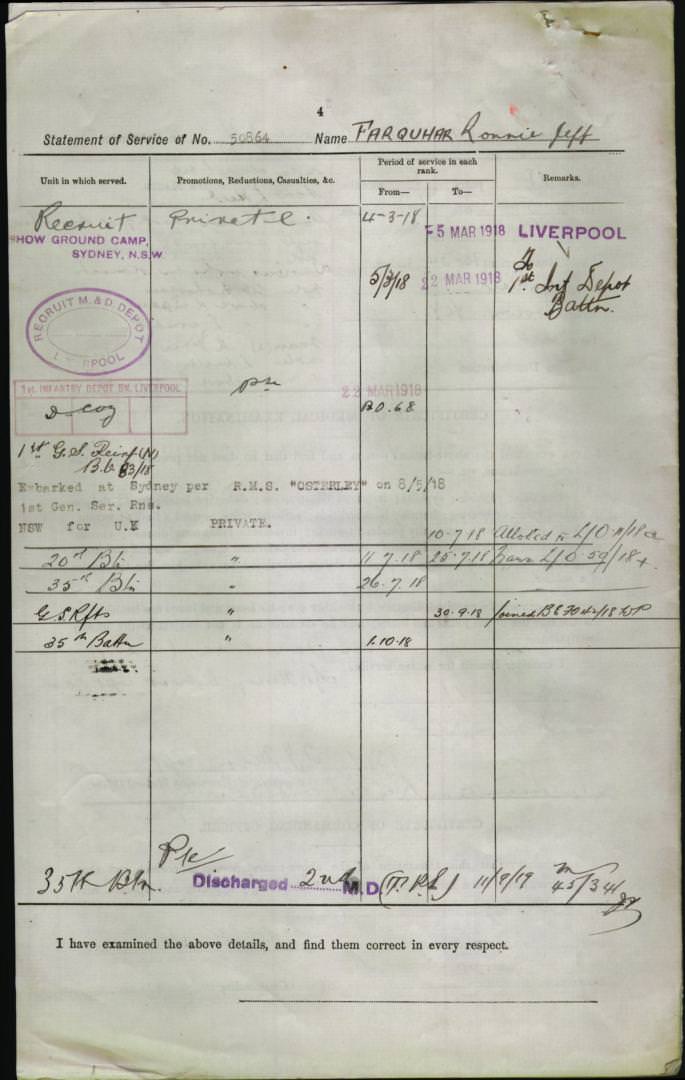 4
Statement of Service of No. 50864 Name FARQUHAR Ronnie Jeff
Unit in which served. Promotions, Reductions, Casualties, &c. Period of service in each rank. Remarks.
From— To—
Recruit Private. 4-3-18
SHOW GROUND CAMP, -5 MAR 1918 LIVERPOOL
SYDNEY, N.S.W.
5/3/18 22 MAR 1918 To 1st Inf Depot Battn.
RECRUIT M. & D DEPOT
LIVERPOOL
1st. INFANTRY DEPOT BN. LIVERPOOL
Pte 22 MAR 1918
D Coy B.O. 68
1st G.S. Reinf (N)
Embarked at Sydney per R.M.S. "OSTERLEY" on 8/5/18
1st Gen. Ser. Rns.
NSW for U.K PRIVATE.
10-7-18 Allotted
20th Btn " 11-7-18 25-7-18 Trans L/O 59/18
35th Btn " 26-7-18
G.S. Rfts " 30-9-18 joined
35th Battn " 1-10-18
Pte
35th Btn Discharged 2nd M.D. 11/9/19
I have examined the above details, and find them correct in every respect.